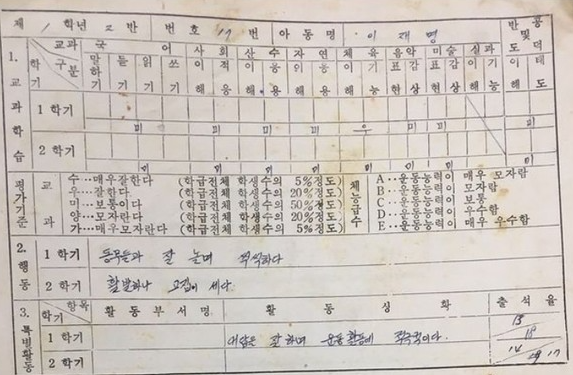 제 1 학년 2 반 번호 19 번 아동명 이재명 반공 및 도덕
1. 교과학습 학기 구분 교과 국어 사회 산수 자연 체육 음악 미술 실과
말하기 듣기 읽기 쓰기 이해 적응 이해 응용 이해 응용 이해 기능 표현 감상 표현 감상 이해 기능 이해 태도
1 학기
미 미 미 미 우 미 미
2 학기
미 미 미 미 미 미 미 미
평가기준 교과 수…매우잘한다 (학급전체 학생수의 5%정도) 체능급수 A‥운동능력이 매우 모자람
우…잘한다 (학급전체 학생수의 20%정도) B‥운동능력이 모자람
미…보통이다 (학급전체 학생수의 50%정도) C‥운동능력이 보통
양…모자란다 (학급전체 학생수의 20%정도) D‥운동능력이 우수함
가…매우모자란다 (학급전체 학생수의 5%정도) E‥운동능력이 매우 우수함
2. 행동 1 학기 동무들과 잘 놀며 씩씩하다
2 학기 활발하나 고집이 세다.
3. 특별활동 학기 항목 활동부서명 활동상황 출석율
1 학기 대답은 잘 하며 운동 활동에 적극적이다.
2 학기